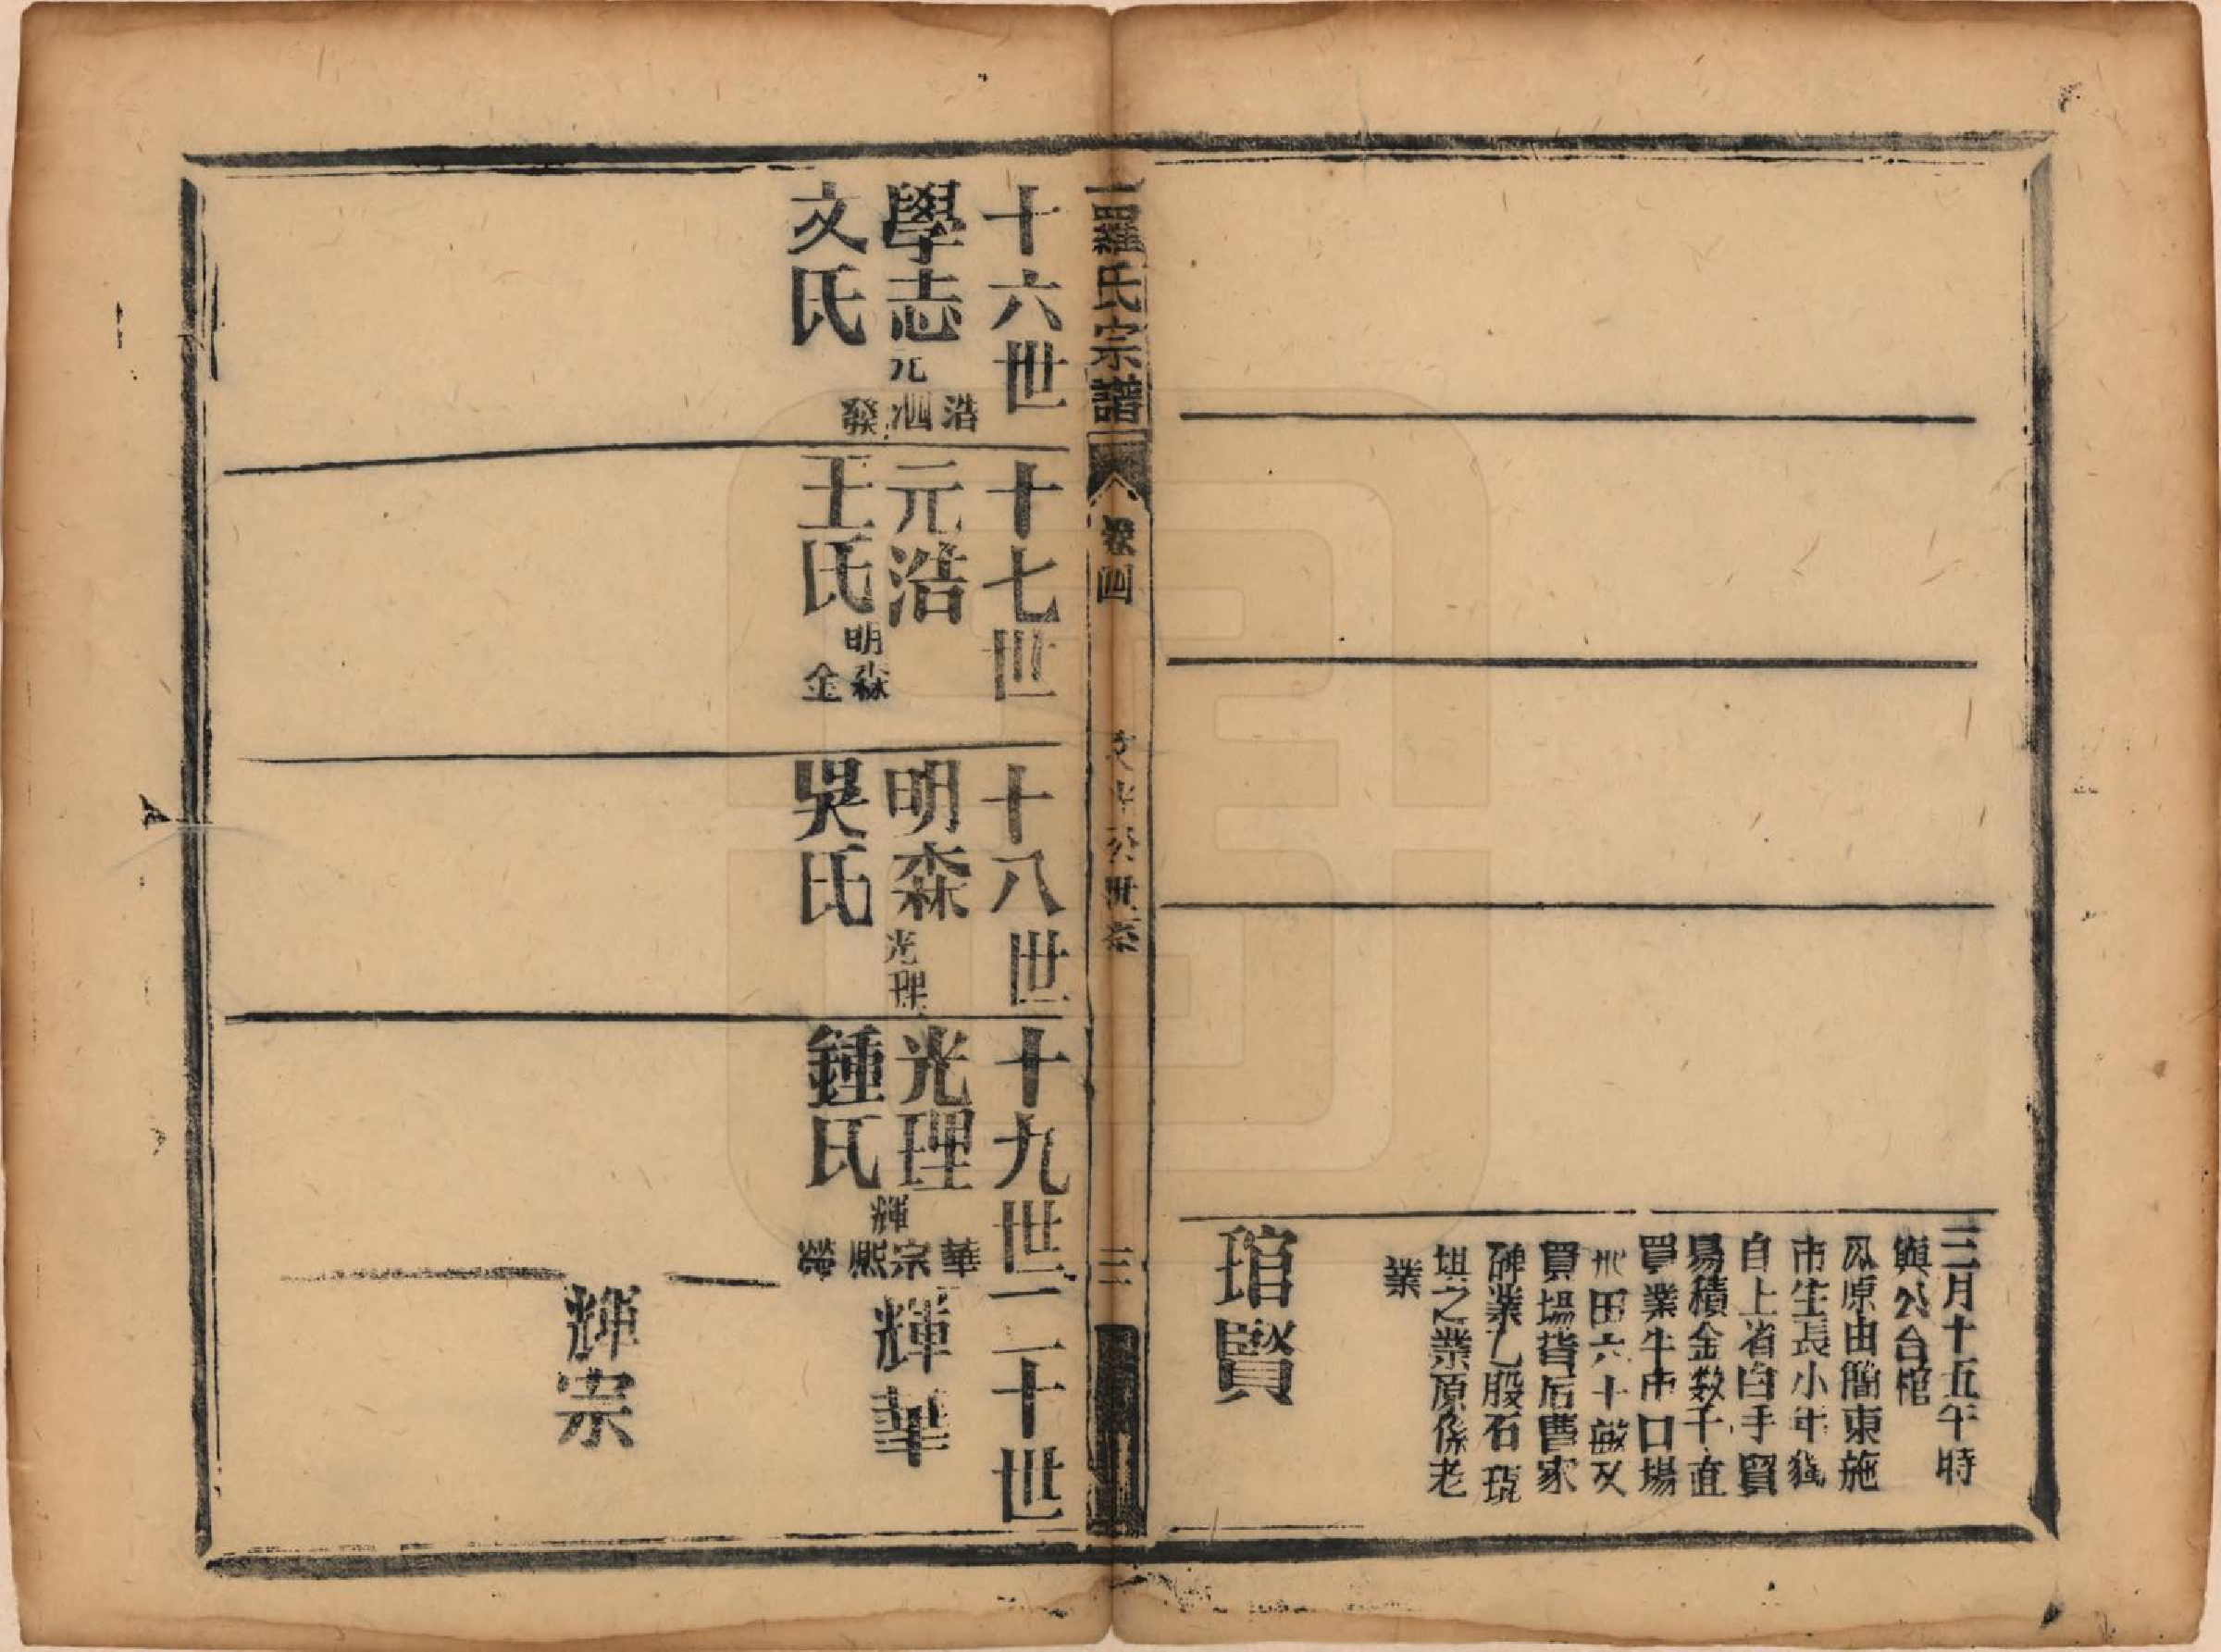 三月十五午時
與公台棺
瓜原由簡東施
市生長小年
自上省白手貿
易積金数千直
買業牛市口場
田六十畝又
買場背后曹家
碑業乙股石
垻之業原係老
業
琯賢
羅氏宗譜
卷四
公世系
三
十六世
學志
元
浩
泗
發
文氏
十七世
元浩
王氏
明
森
金
十八世
明森
光理
吳氏
十九世
光理
鍾氏
輝
華
宗
熙
榮
二十世
輝華
輝宗